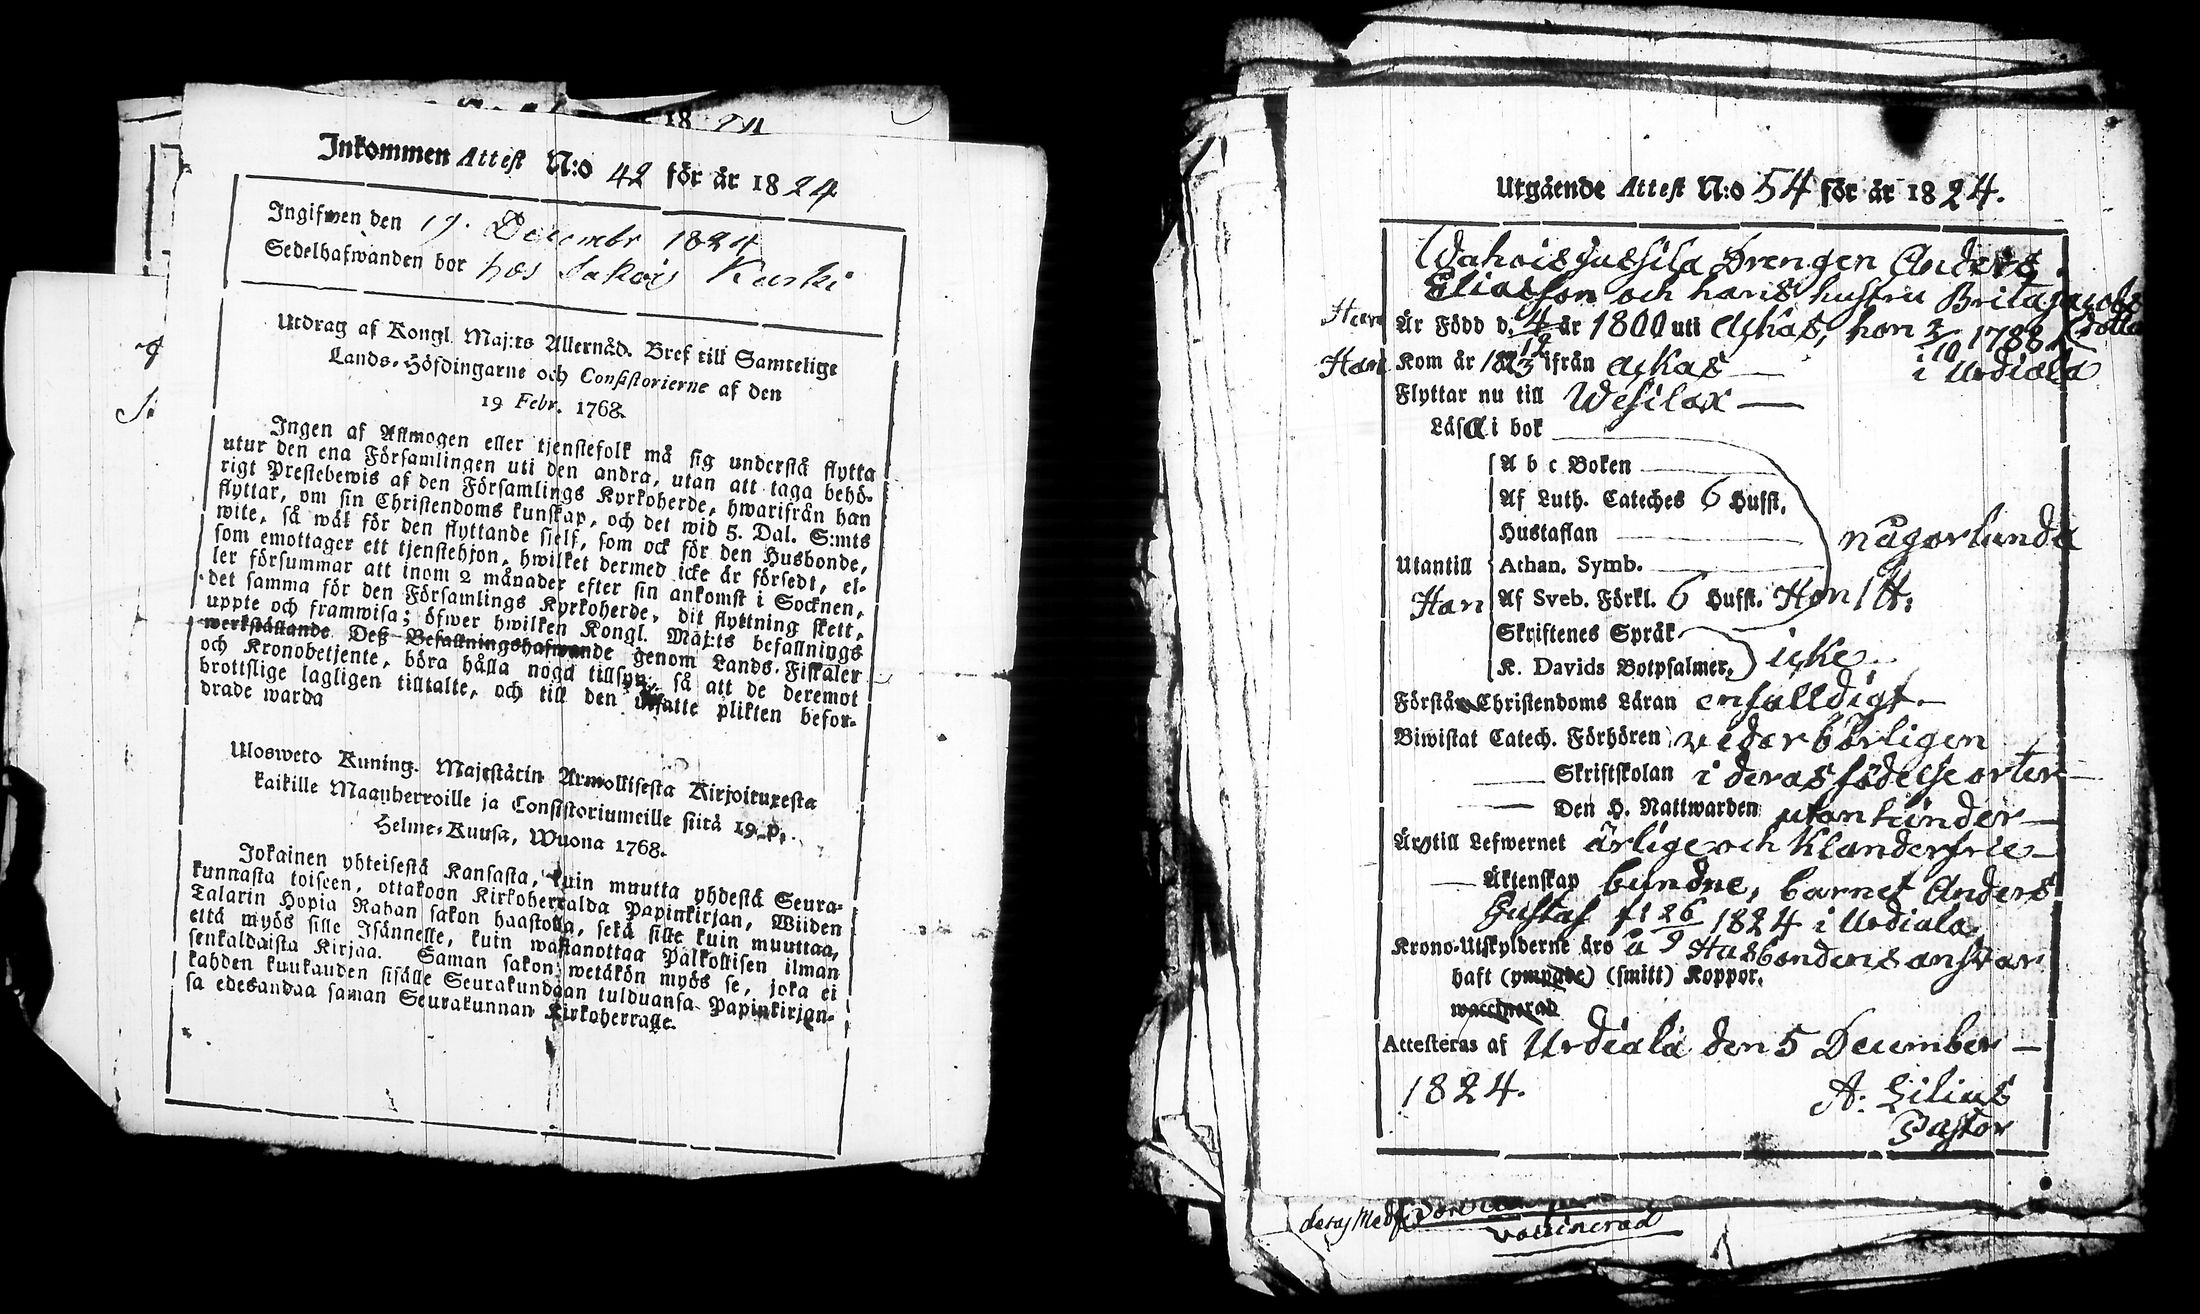 18 24
Inkommen Attest N:o 42 för år 18 24
Ingifwen den 19. Decembr 1824
Sedelhafwanden bor hos Sakois Kurki
Utdrag af Kongl. Maj:ts Allernåd. Bref till Samtelige
Lands-Höfdingarne och Consistorierne af den
19 Febr. 1768.
Ingen af Allmogen eller tjenstefolk må sig understå flytta
utur den ena Församlingen uti den andra, utan att taga behö-
rigt Prestebewis af den Församlings Kyrkoherde, hwarifrån han
flyttar, om sin Christendoms kunskap, och det wid 5. Dal. S:mts
wite, så wäl för den flyttande sielf, som ock för den Husbonde,
som emottager ett tjenstehjon, hwilket dermed icke är försedt, el-
ler försummar att inom 2 månader efter sin ankomst i Socknen,
det samma för den Församlings Kyrkoherde, dit flyttning skett,
uppte och framwisa; öfwer hwilken Kongl. Maj:ts befallnings
werkställande Deß Befallningshafwande genom Lands-Fiskaler
och Kronobetjente, böra hålla nogd tillsyn, så att de deremot
brottslige lagligen tilltalte, och till den utsatte plikten befor-
drade warda
Ulosweto Kuning. Majestätin Armollisesta Kirjoituxesta
kaikille Maanherroille ja Consistoriumeille siitä 19 p.
Helme-Kuusa, Wuona 1768.
Jokainen yhteisestä Kansasta, kuin muutta yhdestä Seura-
kunnasta toiseen, ottakoon Kirkoherralda Papinkirjan, Wiiden
Talarin Hopia Rahan sakon haastolla, sekä sille kuin muuttaa,
että myös sille Isännelle, kuin wastanottaa Palkollisen ilman
senkaldaista Kirjaa. Saman sakon wetäkön myös se, joka ei
kahden kuukauden sisälle Seurakundaan tulduansa Papinkirjan-
sa edesandaa saman Seurakunnan Kirkoherralle.
Utgående Attest N:o 54 för år 18 24.
Wahoisjussila Drengen Anders
Eliasson och hans hustru Brita Jacobs
Han Är Född d. 4/12 år 1800 uti Ackas, hon 2/10 1788 dotter
Han Kom år 1823 ifrån Ackas — i Urdiala
Flyttar nu till Wesilax —
Läsa i bok
A b c Boken
Af Luth. Cateches 6 Hufst.
Hustaflan någorlunda
Utantill Athan. Symb.
Han Af Sveb. Förkl. 6 Hufst. Hon 1 H.
Skriftenes Språk
K. Davids Botpsalmer, icke
Förstå Christendoms Läran enfalldigt —
Biwistat Catech. Förhören vederbörligen
— Skriftskolan i deras födelse orter —
— Den H. Nattwarden utan hinder —
Äro till Lefwernet ärlige och klanderfrie —
— Äktenskap bundne, barnet Anders
Gustaf f. 26/9 1824 i Urdiala
Krono-Utskylderne äro å Husbondens answar
haft (ympade) (smitt) Koppor.
waccinerad
Attesteras af Urdiala den 5 December —
1824.
A: Lilius
Pastor
vaccinerad